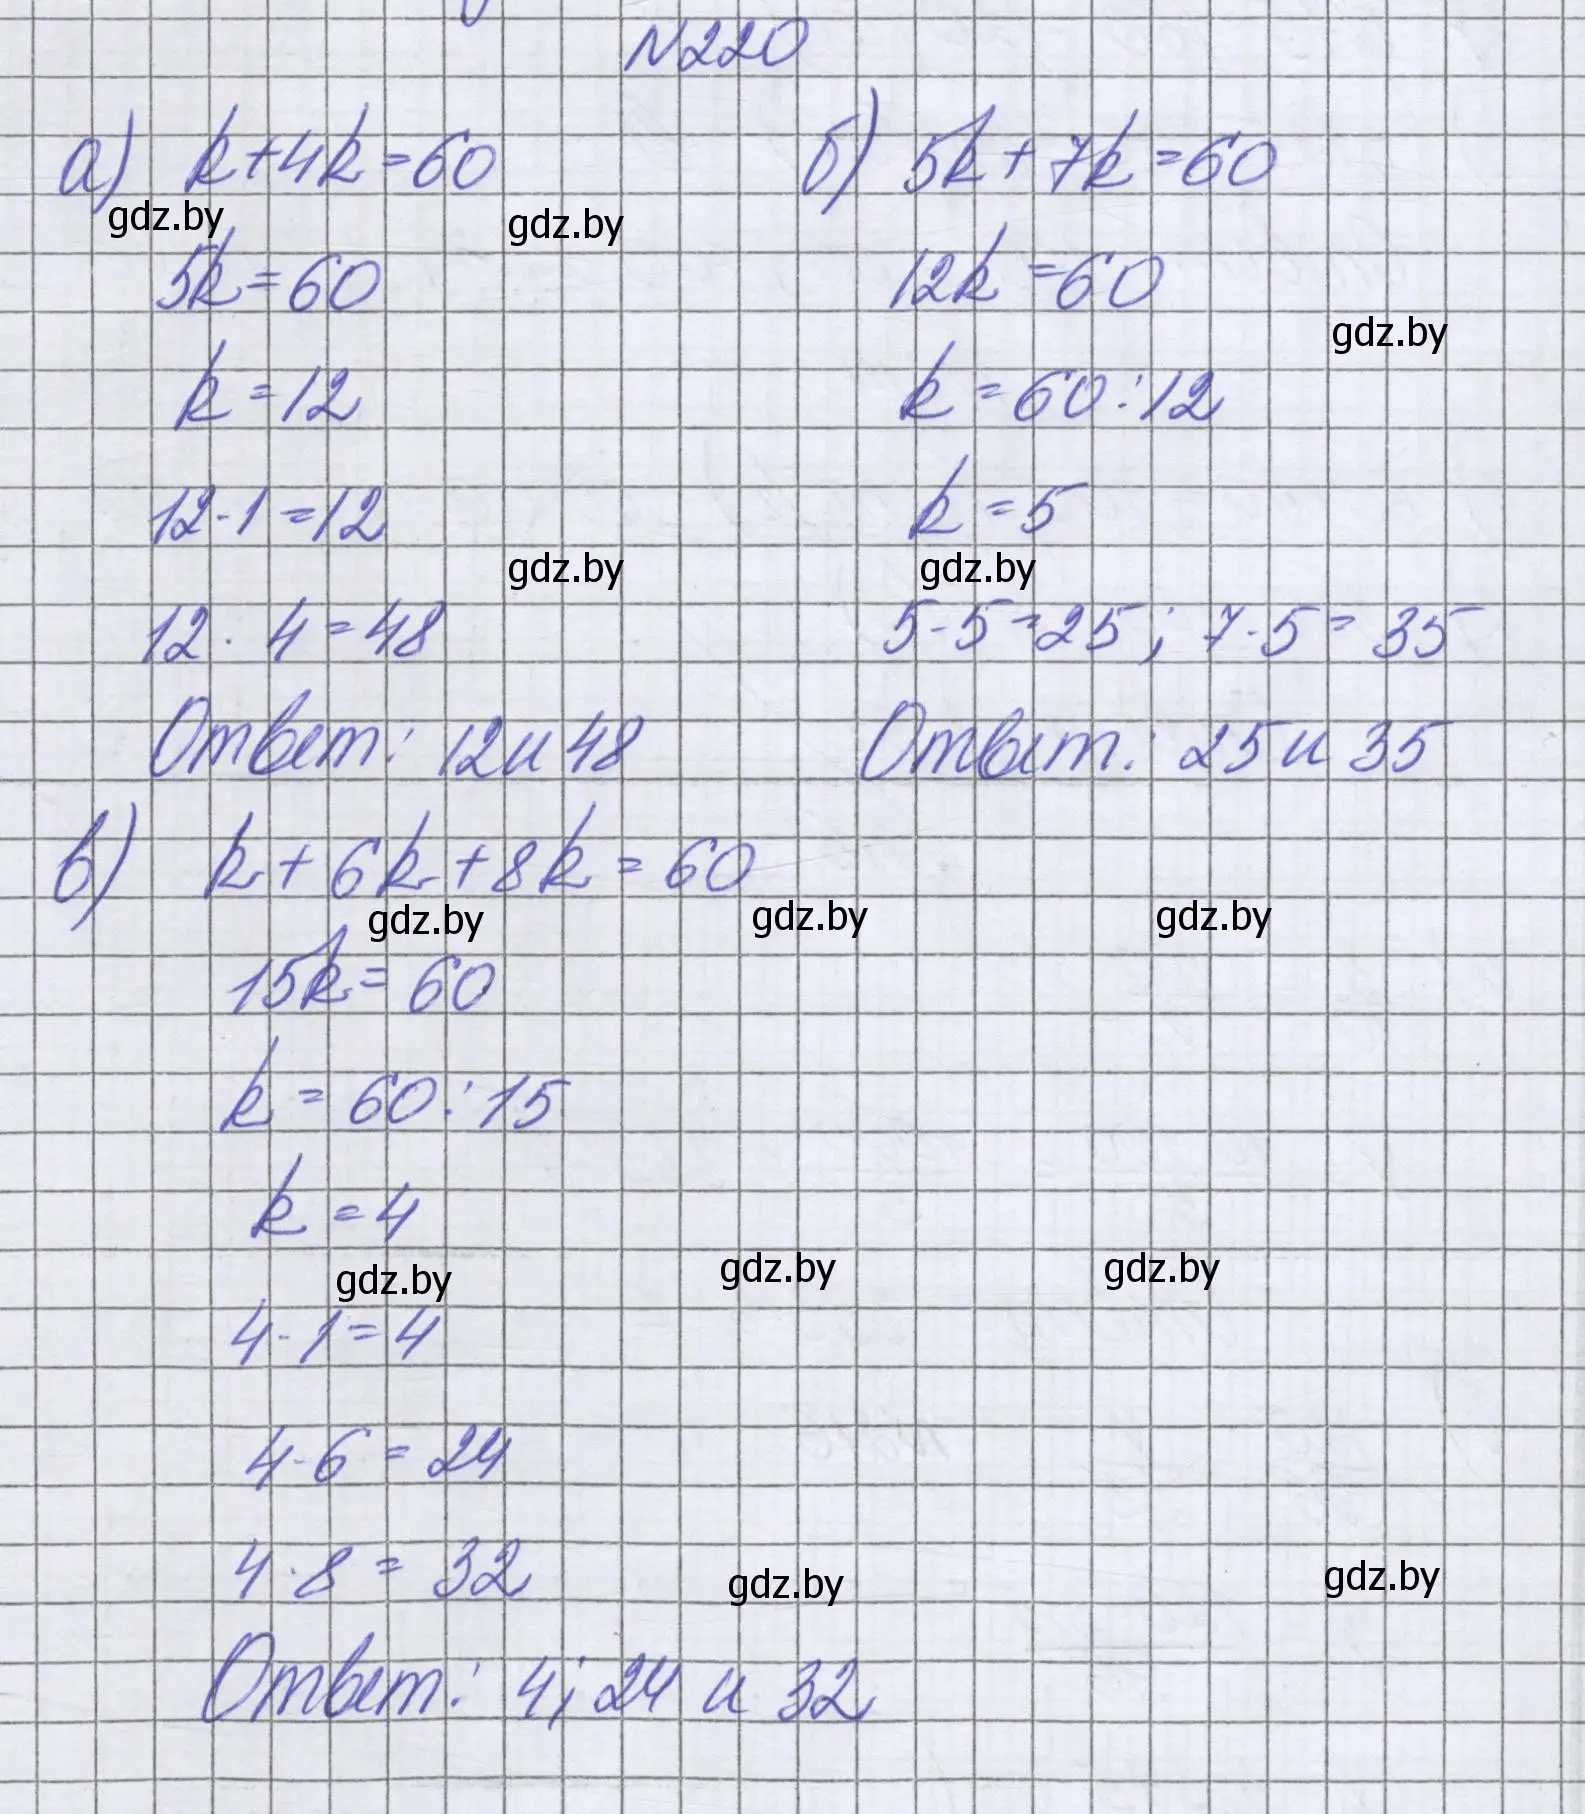 N220
а) k+4k=60
gdz.by
gdz.by
5k=60
k=12
12·1=12
12·4=48
Ответ: 12 и 48
б) 5k+7k=60
12k=60
gdz.by
k=60:12
k=5
gdz.by
gdz.by
5·5=25; 7·5=35
Ответ: 25 и 35
в) k+6k+8k=60
gdz.by
gdz.by
gdz.by
15k=60
k=60:15
k=4
gdz.by
gdz.by
gdz.by
4·1=4
4·6=24
4·8=32
gdz.by
gdz.by
Ответ: 4; 24 и 32